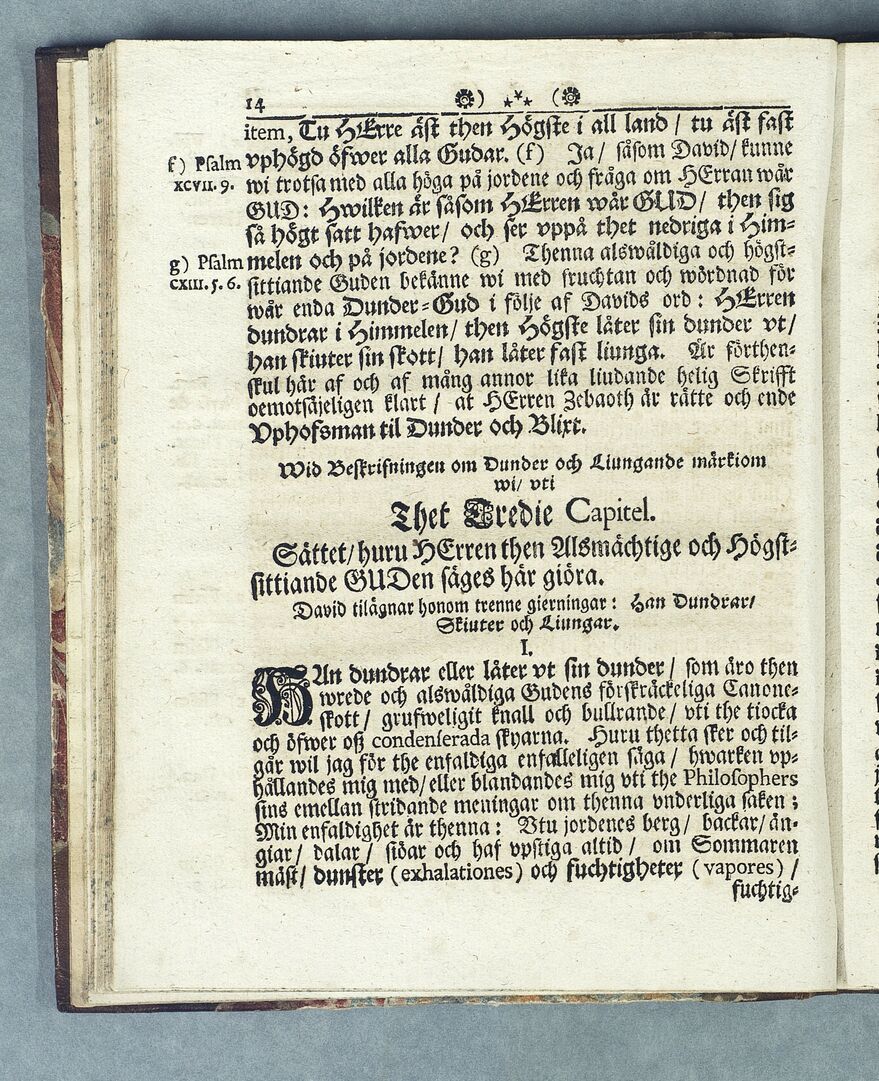 14
item, Tu HErre äst then Högste i all land / tu äst fast
f) Psalm
XCVII. 9.
vphögd öfwer alla Gudar. (f) Ja / såsom David / kunne
wi trotsa med alla höga på jordene och fråga om HErran wår
GUD: Hwilken är såsom HErren wår GUD / then sig
så högt satt hafwer / och ser vppå thet nedriga i Him-
g) Psalm
CXIII. 5. 6.
melen och på jordene? (g) Thenna alswåldiga och högst-
sittiande Guden bekänne wi med fruchtan och wördnad för
wår enda Dunder-Gud i följe af Davids ord: HErren
dundrar i Himmelen / then Högste låter sin dunder vt /
han skiuter sin skott / han låter fast liunga. Är förthen-
skul här af och af mång annor lika liudande helig Skrifft
oemotsäjeligen klart / at HErren Zebaoth är rätte och ende
Vphofsman til Dunder och Blixt.
Wid Beskrifningen om Dunder och Liungande märkiom
wi / vti
Thet Tredie Capitel.
Sättet / huru HErren then Alsmächtige och Högst-
sittiande GUDen säges här giöra.
David tilägnar honom trenne gierningar: Han Dundrar /
Skiuter och Liungar.
I.
HAn dundrar eller låter vt sin dunder / som äro then
wrede och alswåldiga Gudens förskräckeliga Canone-
skott / grufweligit knall och bullrande / vti the tiocka
och öfwer oß condenserada skyarna. Huru thetta sker och til-
går wil jag för the enfaldiga enfalleligen säga / hwarken vp-
hållandes mig med / eller blandandes mig vti the Philosophers
sins emellan stridande meningar om thenna vnderliga saken;
Min enfaldighet är thenna: Vtu jordenes berg / backar / än-
giar / dalar / siöar och haf vpstiga altid / om Sommaren
mäst / dunster (exhalationes) och fuchtigheter (vapores) /
fuchtig-